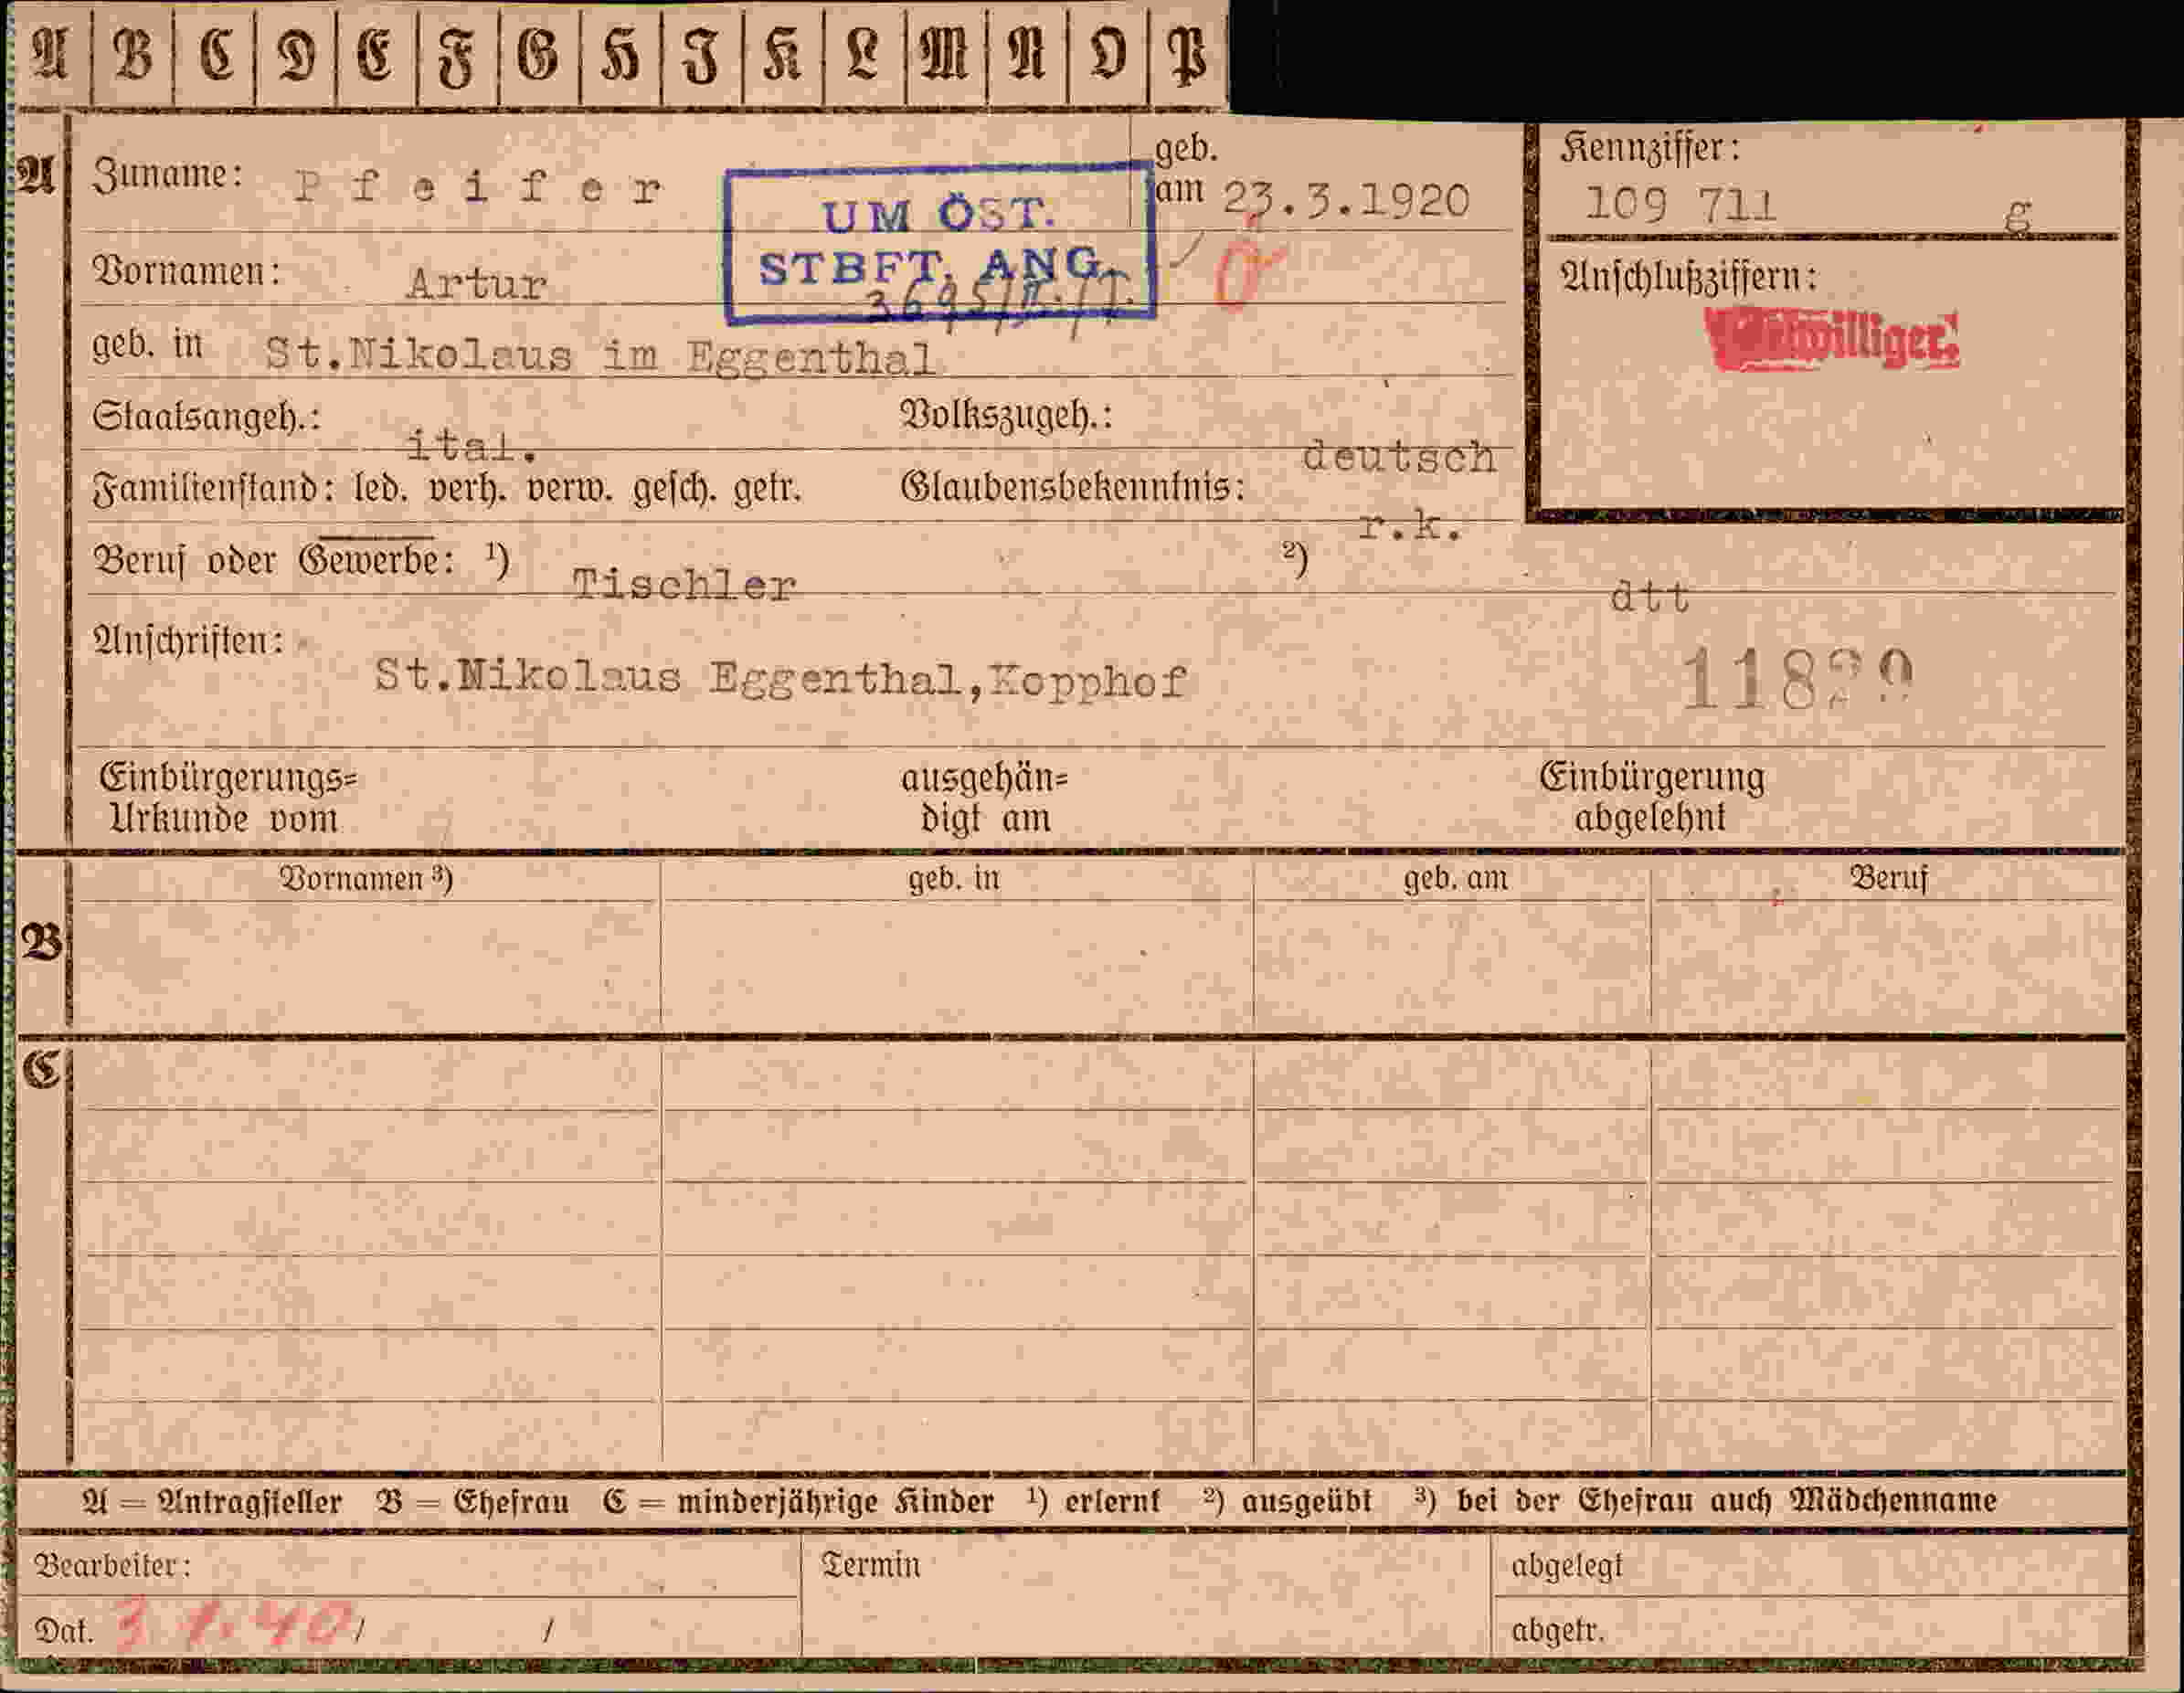 A B C D E F G H I K L M N O P
A Zuname: Pfeifer geb. am 23.3.1920 Kennziffer: 109 711 g
UM ÖST.
STBFT. ANG.
Vornamen: Artur Anschlußziffern:
geb. in St.Nikolaus im Eggenthal Freiwilliger!
Staatsangeh.: ital. Volkszugeh.: deutsch
Familienstand: led. verh. verw. gesch. getr. Glaubensbekenntnis: r.k.
Beruf oder Gewerbe: ¹) Tischler ²) dtt
Anschriften: St.Nikolaus Eggenthal,Kopphof 11820
Einbürgerungs= ausgehän= Einbürgerung
Urkunde vom digt am abgelehnt
Vornamen ³) geb. in geb. am Beruf
B
C
A = Antragsteller B = Ehefrau C = minderjährige Kinder ¹) erlernt ²) ausgeübt ³) bei der Ehefrau auch Mädchenname
Bearbeiter: Termin abgelegt
Dat. 3 1.40 / / abgetr.